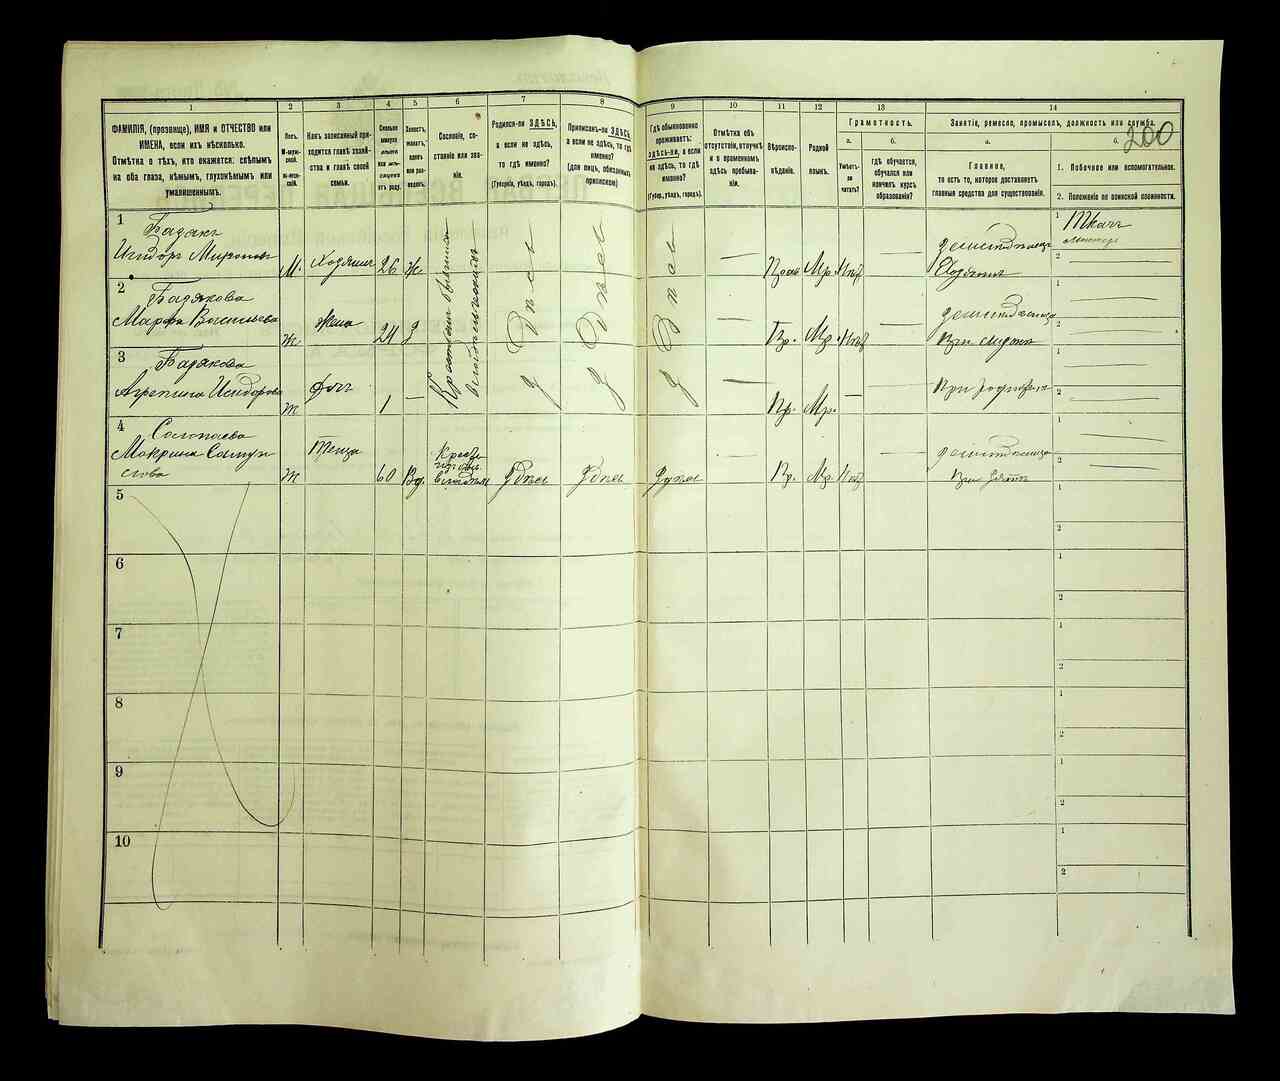 200
1
ФАМИЛІЯ, (прозвище), ИМЯ и ОТЧЕСТВО или
ИМЕНА, если ихъ нѣсколько.
Отмѣтка о тѣхъ, кто окажется: слѣпымъ
на оба глаза, нѣмымъ, глухонѣмымъ или
умалишеннымъ.
2
Полъ.
М-мужской.
Ж-женскій.
3
Какъ записанный при-
ходится главѣ хозяй-
ства и главѣ своей
семьи.
4
Сколько
минуло
лѣтъ
или мѣ-
сяцевъ
отъ роду.
5
Холостъ,
женатъ,
вдовъ
или раз-
веденъ.
6
Сословіе, со-
стояніе или зва-
ніе.
7
Родился-ли ЗДѢСЬ,
а если не здѣсь,
то гдѣ именно?
(Губернія, уѣздъ, городъ).
8
Приписанъ-ли ЗДѢСЬ,
а если не здѣсь, то гдѣ
именно?
(для лицъ, обязанныхъ
припискою)
9
Гдѣ обыкновенно
проживаетъ:
ЗДѢСЬ-ли, а если
не здѣсь, то гдѣ
именно?
(Губер., уѣздъ, городъ).
10
Отмѣтка объ
отсутствіи, отлучкѣ
и о временномъ
здѣсь пребыва-
ніи.
11
Вѣроиспо-
вѣданіе.
12
Родной
языкъ.
13
Грамотность.
а.
Умѣетъ-
ли
читать?
б.
Гдѣ обучается,
обучался или
кончилъ курсъ
образованія?
14
Занятіе, ремесло, промыселъ, должность или служба.
а.
Главное,
то есть то, которое доставляетъ
главныя средства для существованія.
б.
1. Побочное или вспомогательное.
2. Положеніе по воинской повинности.
1
Базякъ
Исидоръ Мироновъ
М. Хозяинъ 26 Ж
Здѣсь Здѣсь Здѣсь
Прав Мр.
Хозяинъ
1 Ткачъ
2
2
Базякова
Марфа Васильева
Ж Жена 24 З
Пр. Мр.
1
2
3
Базякова
Агрепина Исидорова
Ж дочь 1
Пр. Мр.
1
2
4
Макрина Самуй
лова
Ж Теща 60 Вд.
Здѣсь Здѣсь Здѣсь
Пр. Мр.
при зятѣ
1
2
5
1
2
6
1
2
7
1
2
8
1
2
9
1
2
10
1
2